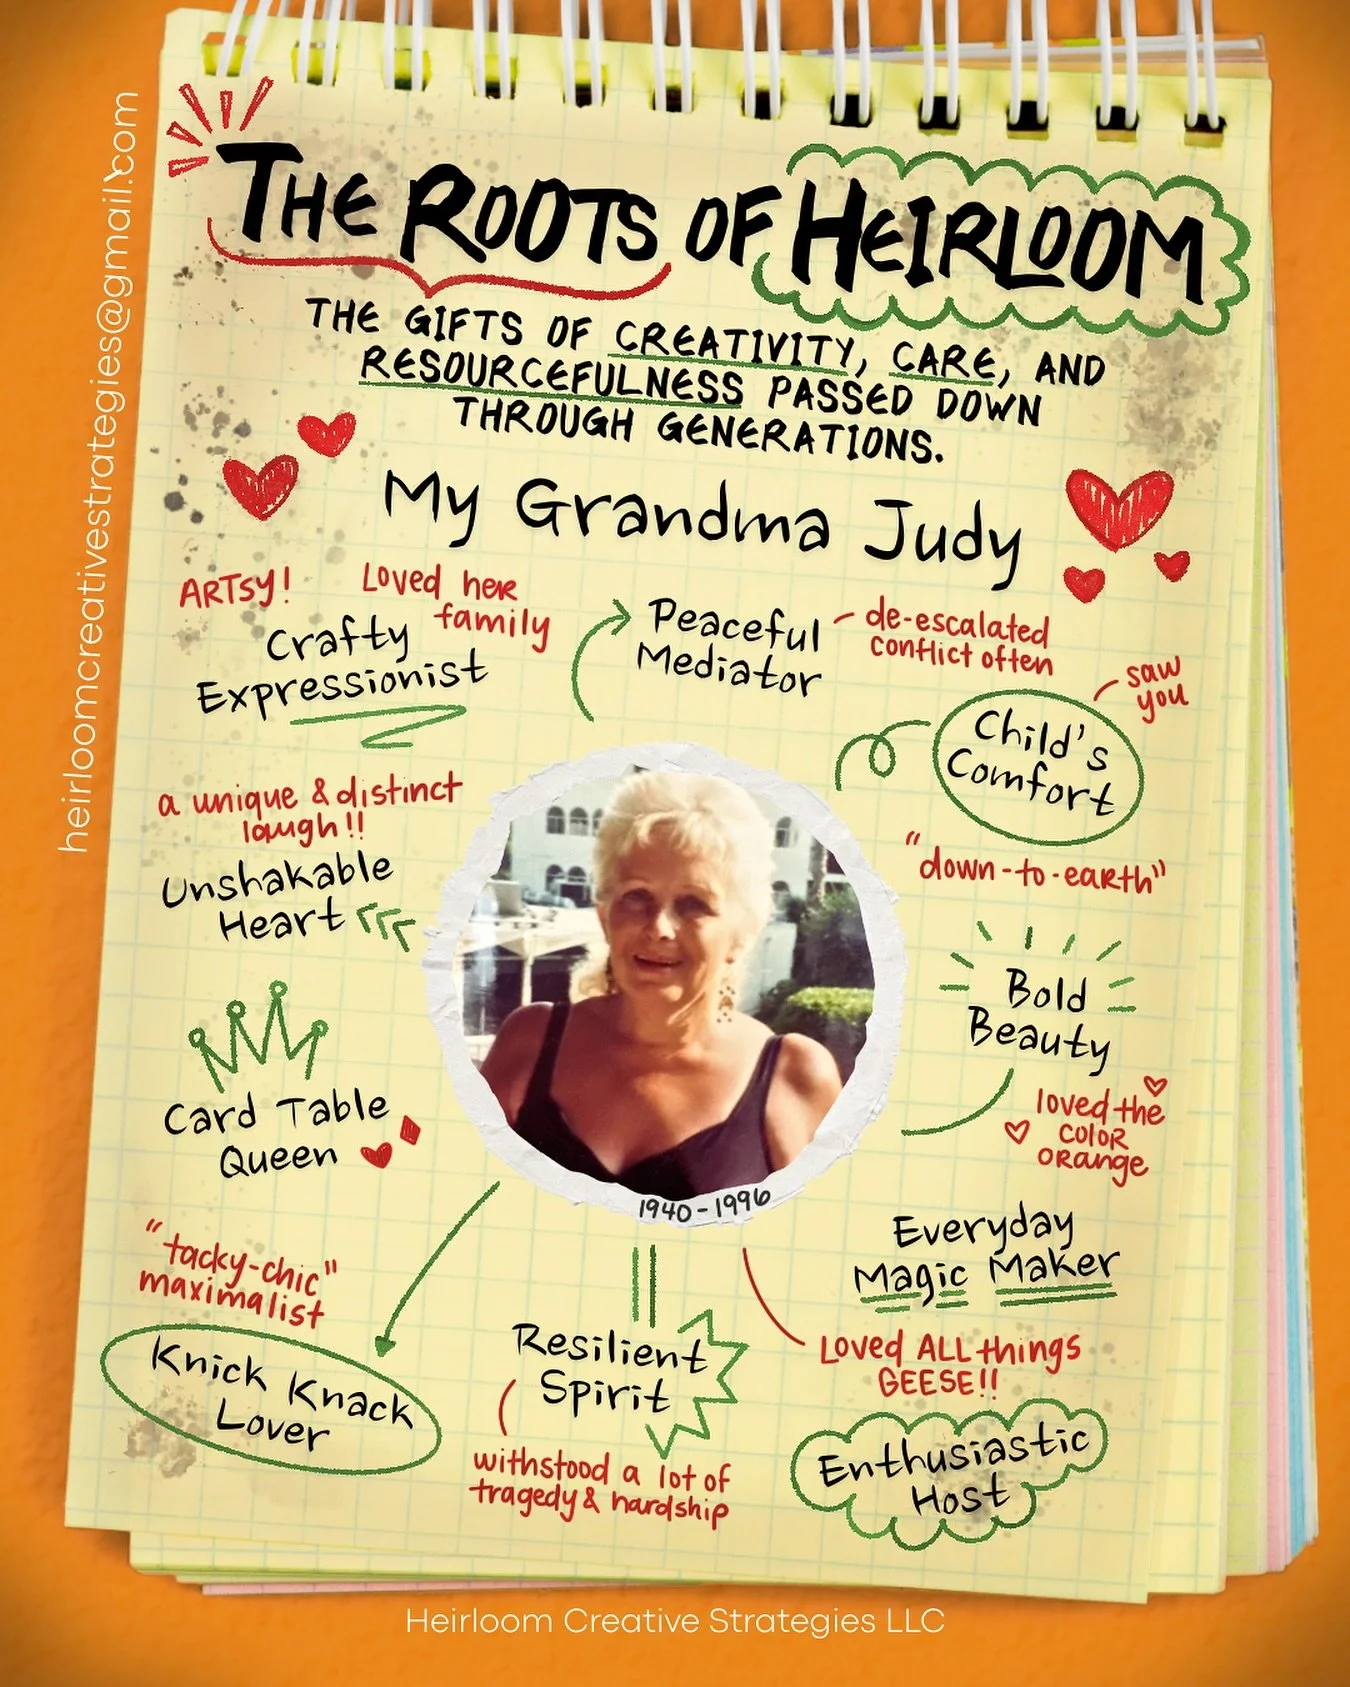 THE ROOTS OF HEIRLOOM
THE GIFTS OF CREATIVITY, CARE, AND
RESOURCEFULNESS PASSED DOWN
THROUGH GENERATIONS.
My Grandma Judy
ARTSY!
Loved her
family
Crafty
Expressionist
Peaceful
Mediator
de-escalated
conflict often
saw
you
Child's
Comfort
a unique & distinct
laugh!!
Unshakable
Heart
"down-to-earth"
Bold
Beauty
loved the
color
orange
Card Table
Queen
1940-1996
"tacky-chic"
maximalist
Knick Knack
Lover
Resilient
Spirit
withstood a lot of
tragedy & hardship
Everyday
Magic Maker
Loved ALL things
GEESE!!
Enthusiastic
Host
heirloomcreativestrategies@gmail.com
Heirloom Creative Strategies LLC